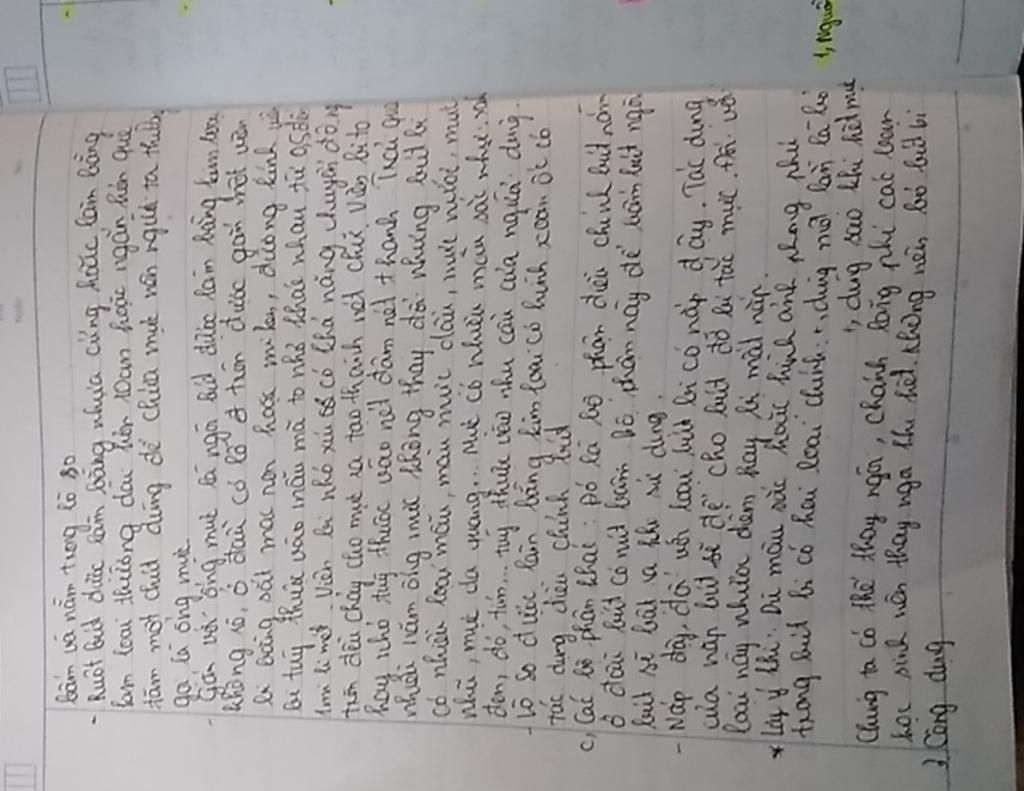 bấm và nằm trong lò so
- Ruột bút được làm bằng nhựa cứng hoặc làm bằng
kim loại thường dài hơn 10cm hoặc ngắn hơn que
tăm một chút dùng để chứa mực nên người ta thường
gọi là ống mực
- Gắn với ống mực là ngòi bút được làm bằng kim loại
không rỉ, ở đầu có lỗ ở trên được gắn một viên
bi bằng sắt mạ hoặc, đường kính viên
bi tuỳ thuộc vào mẫu mã to nhỏ khác nhau từ 0,5 đến
1 mi li mét. Viên bi nhỏ xíu có khả năng chuyển động
tròn đều chảy cho mực ra tạo thành nét chữ. Viên bi to
hay nhỏ tuỳ thuộc vào nét đậm nét thanh. Trải qua
nhiều năm ống mực không thay đổi nhưng bút bi
có nhiều loại mẫu, màu mực dầu, mực nước, mực
nhũ, mực dạ quang... Mực có nhiều màu sắc như: xanh
đen, đỏ, tím... tuỳ thuộc vào nhu cầu của người dùng.
- Lò so được làm bằng kim loại có hình xoắn ốc có
tác dụng điều chỉnh bút
c, Các bộ phận khác: Đó là bộ phận điều chỉnh bút nằm
ở đầu bút có nút bấm bộ phận này để bấm bút ngòi
bút sẽ bật ra khi sử dụng.
- Nắp đậy, đối với loại bút bi có nắp đậy. Tác dụng
của nắp bút sẽ để cho bút đỡ bi tắc mực. Đối với
loại này nhược điểm hay bị mất nắp.
* Lưu ý khi: Dù màu sắc hoặc hình ảnh phong phú
trong bút bi có hai loại chính: +, dùng một lần là bỏ
+, dùng sao khi hết mực
Chúng ta có thể thay ngòi, chánh lãng phí các bạn
học sinh nên thay ngòi khi hết không nên bỏ bút bi
2. Công dụng
1, Người